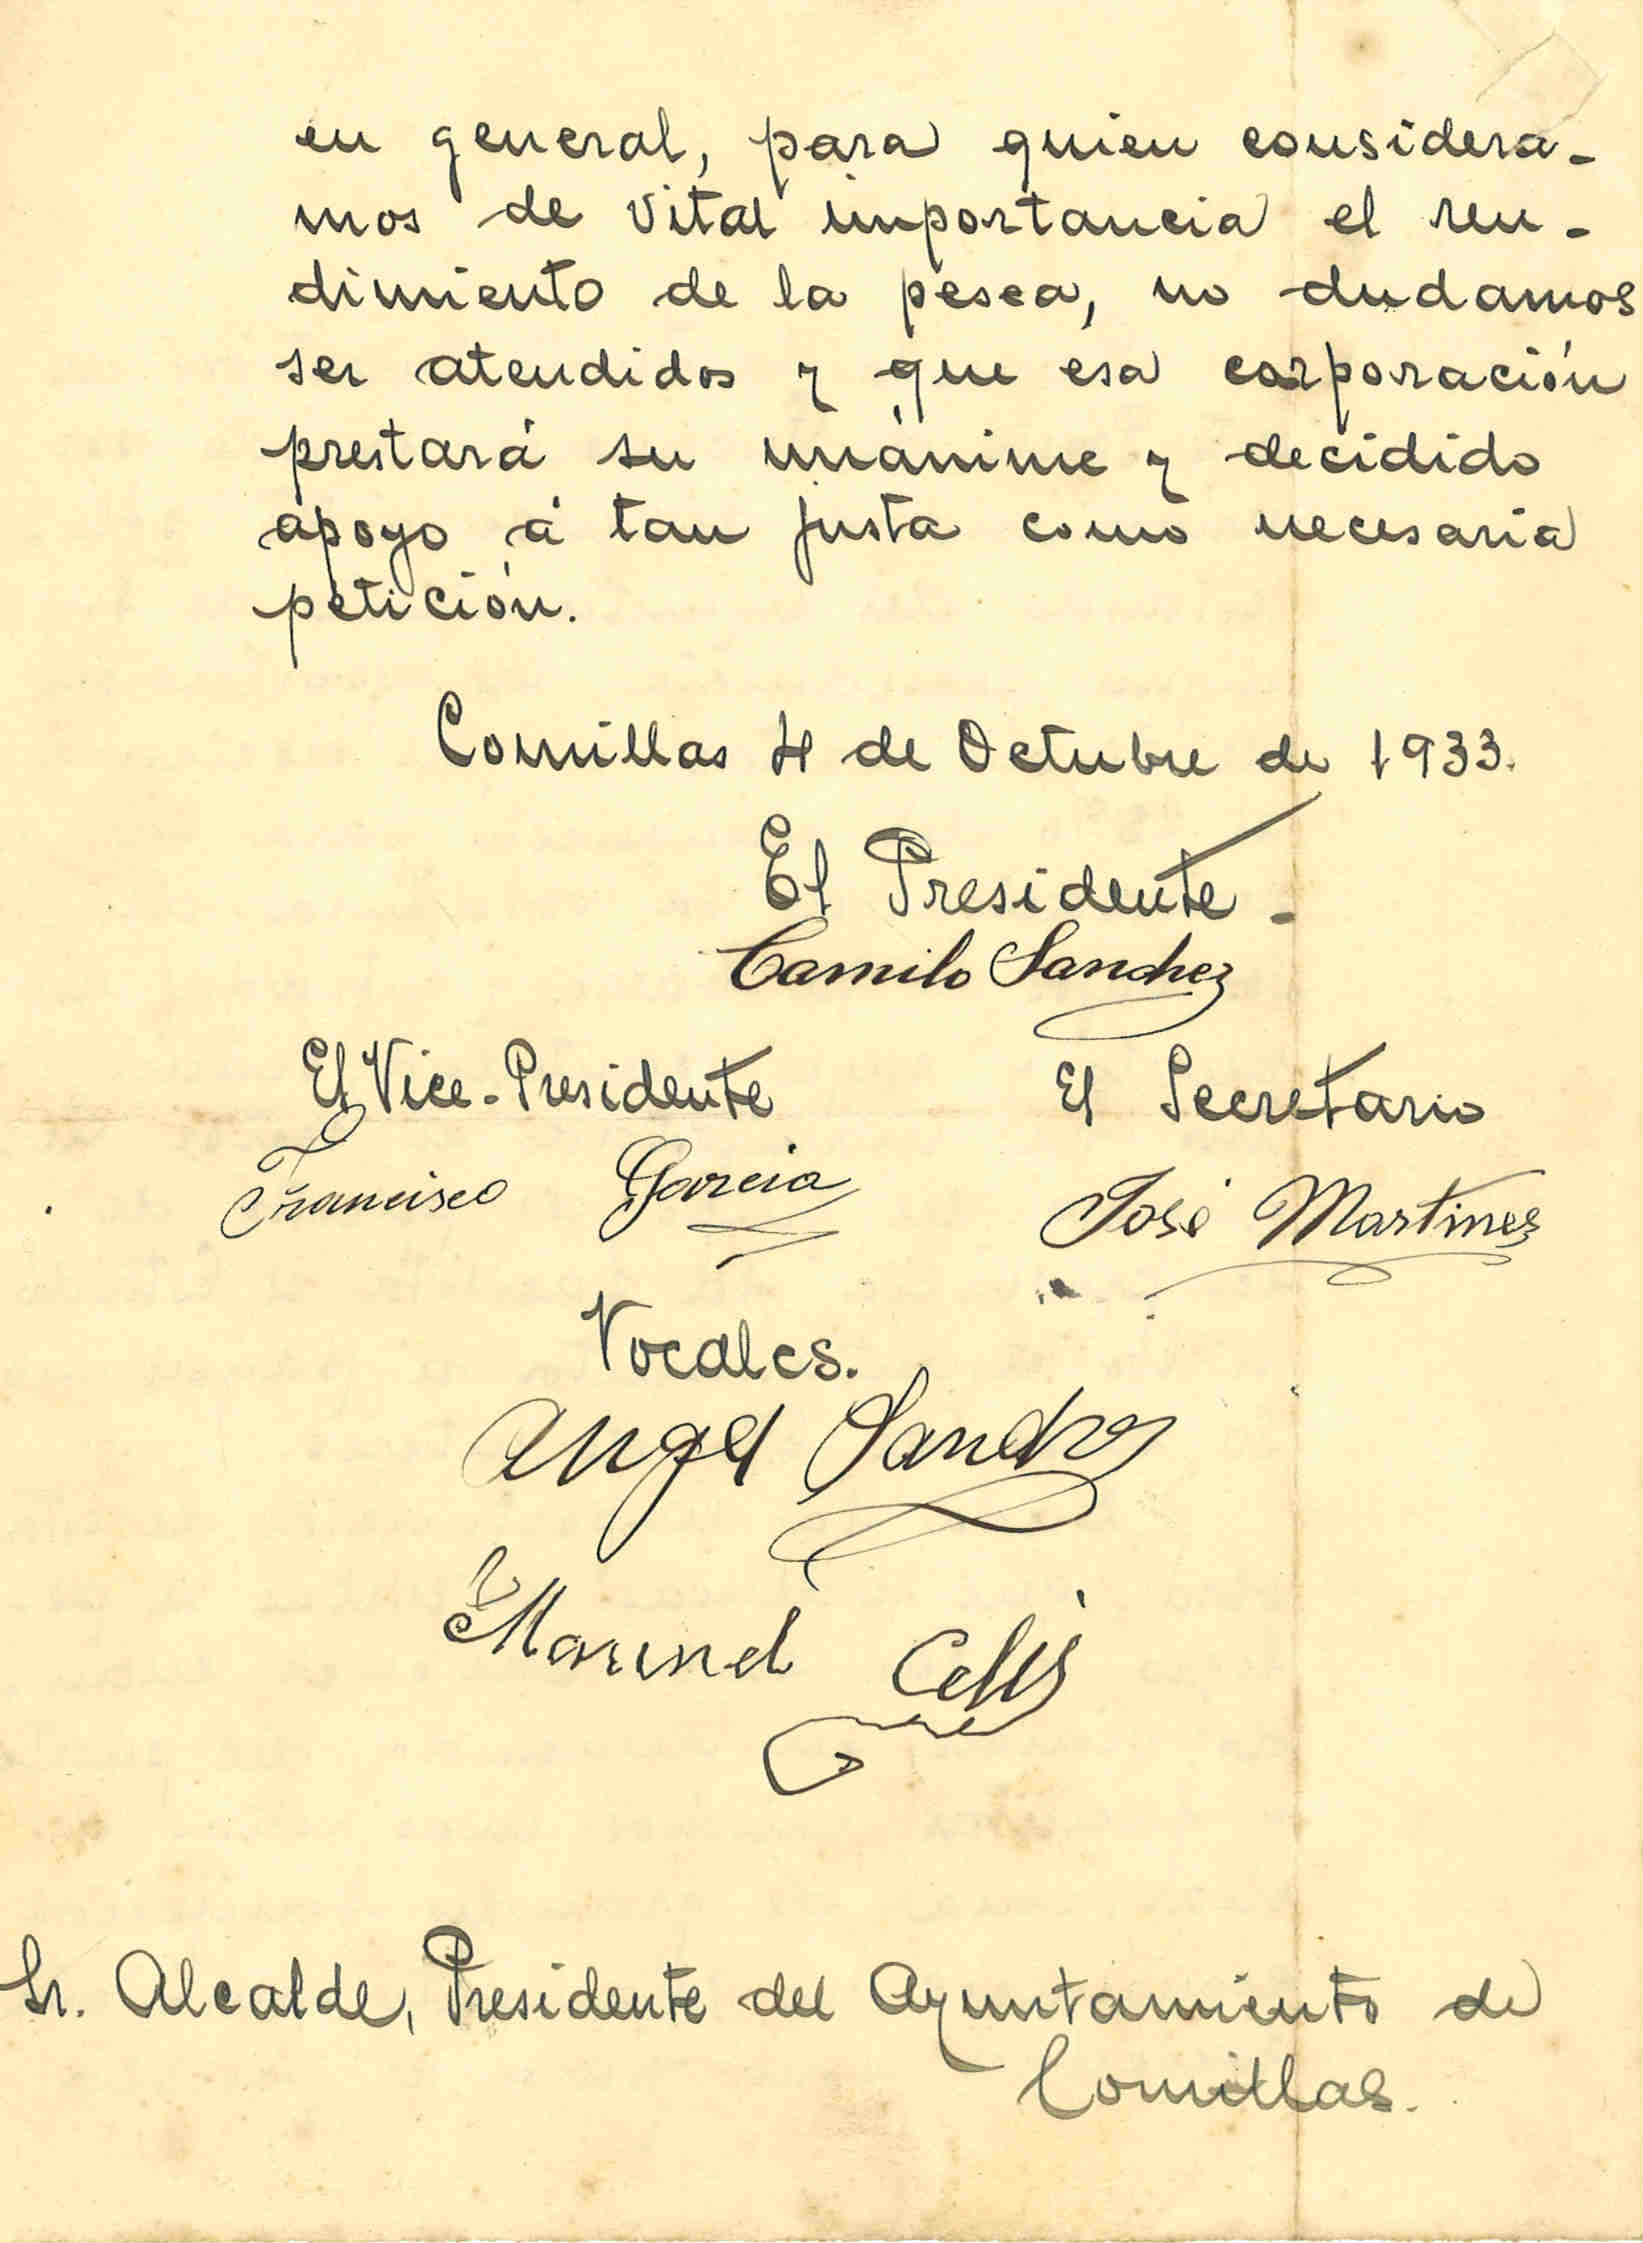 en general, para quien considera-
mos de vital importancia el ren-
dimiento de la pesca, no dudamos
ser atendidos y que esa corporación
prestará su unánime y decidido
apoyo á tan justa como necesaria
petición.
Comillas 4 de Octubre de 1933.
El Presidente-
Camilo Sanchez
El Vice-Presidente El Secretario
Francisco Garcia José Martinez
Vocales.
Angel
Manuel Celis
Sr. Alcalde, Presidente del Ayuntamiento de
Comillas.